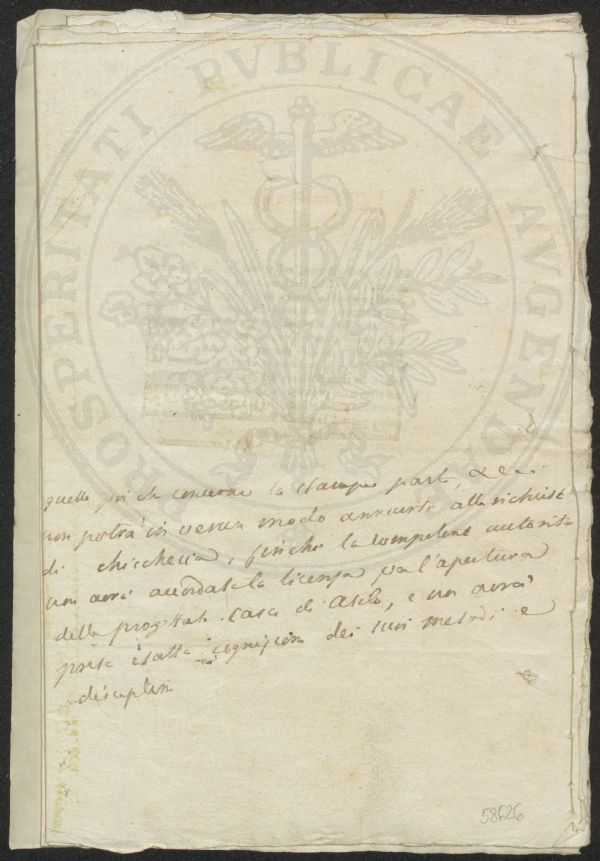 PROSPERITATI PVBLICAE AVGENDAE
quello poi che concerne la stampa
non potrà in verun modo annuirsi alle richieste
di chicchesia, finchè la competente autorità
non avrà accordata la licenza per l'apertura
della progettata Casa di Asilo, e non avrà
presa esatta cognizione dei suoi metodi e
discipline
58626